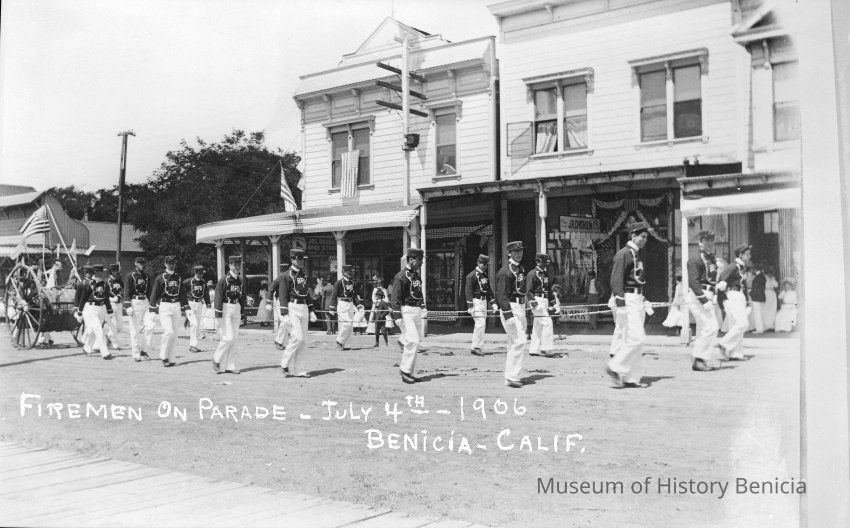 BFD
FIREMEN ON PARADE - JULY 4TH - 1906
BENICIA - CALIF.
Museum of History Benicia